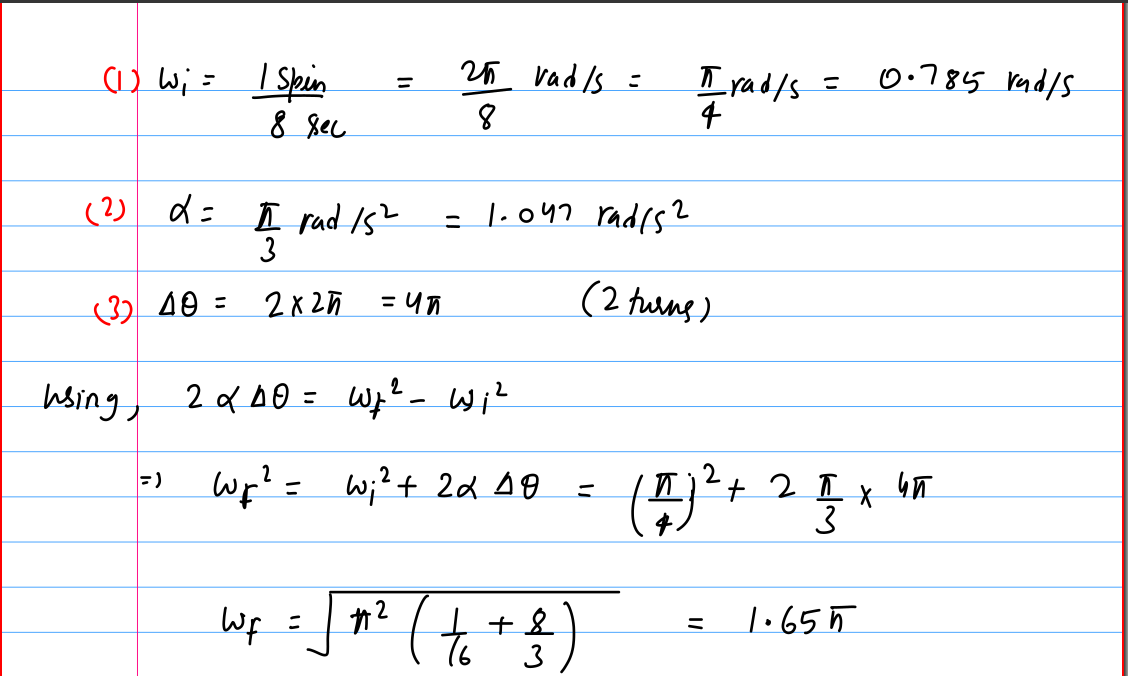 (1) ωi = 1 spin / 8 sec = 2π/8 rad/s = π/4 rad/s = 0.785 rad/s
(2) α = π/3 rad/s² = 1.047 rad/s²
(3) Δθ = 2 x 2π = 4π (2 turns)
Using, 2 α Δθ = ωf² - ωi²
=> ωf² = ωi² + 2α Δθ = (π/4)² + 2 π/3 x 4π
ωf = √(π² (1/16 + 8/3)) = 1.65π